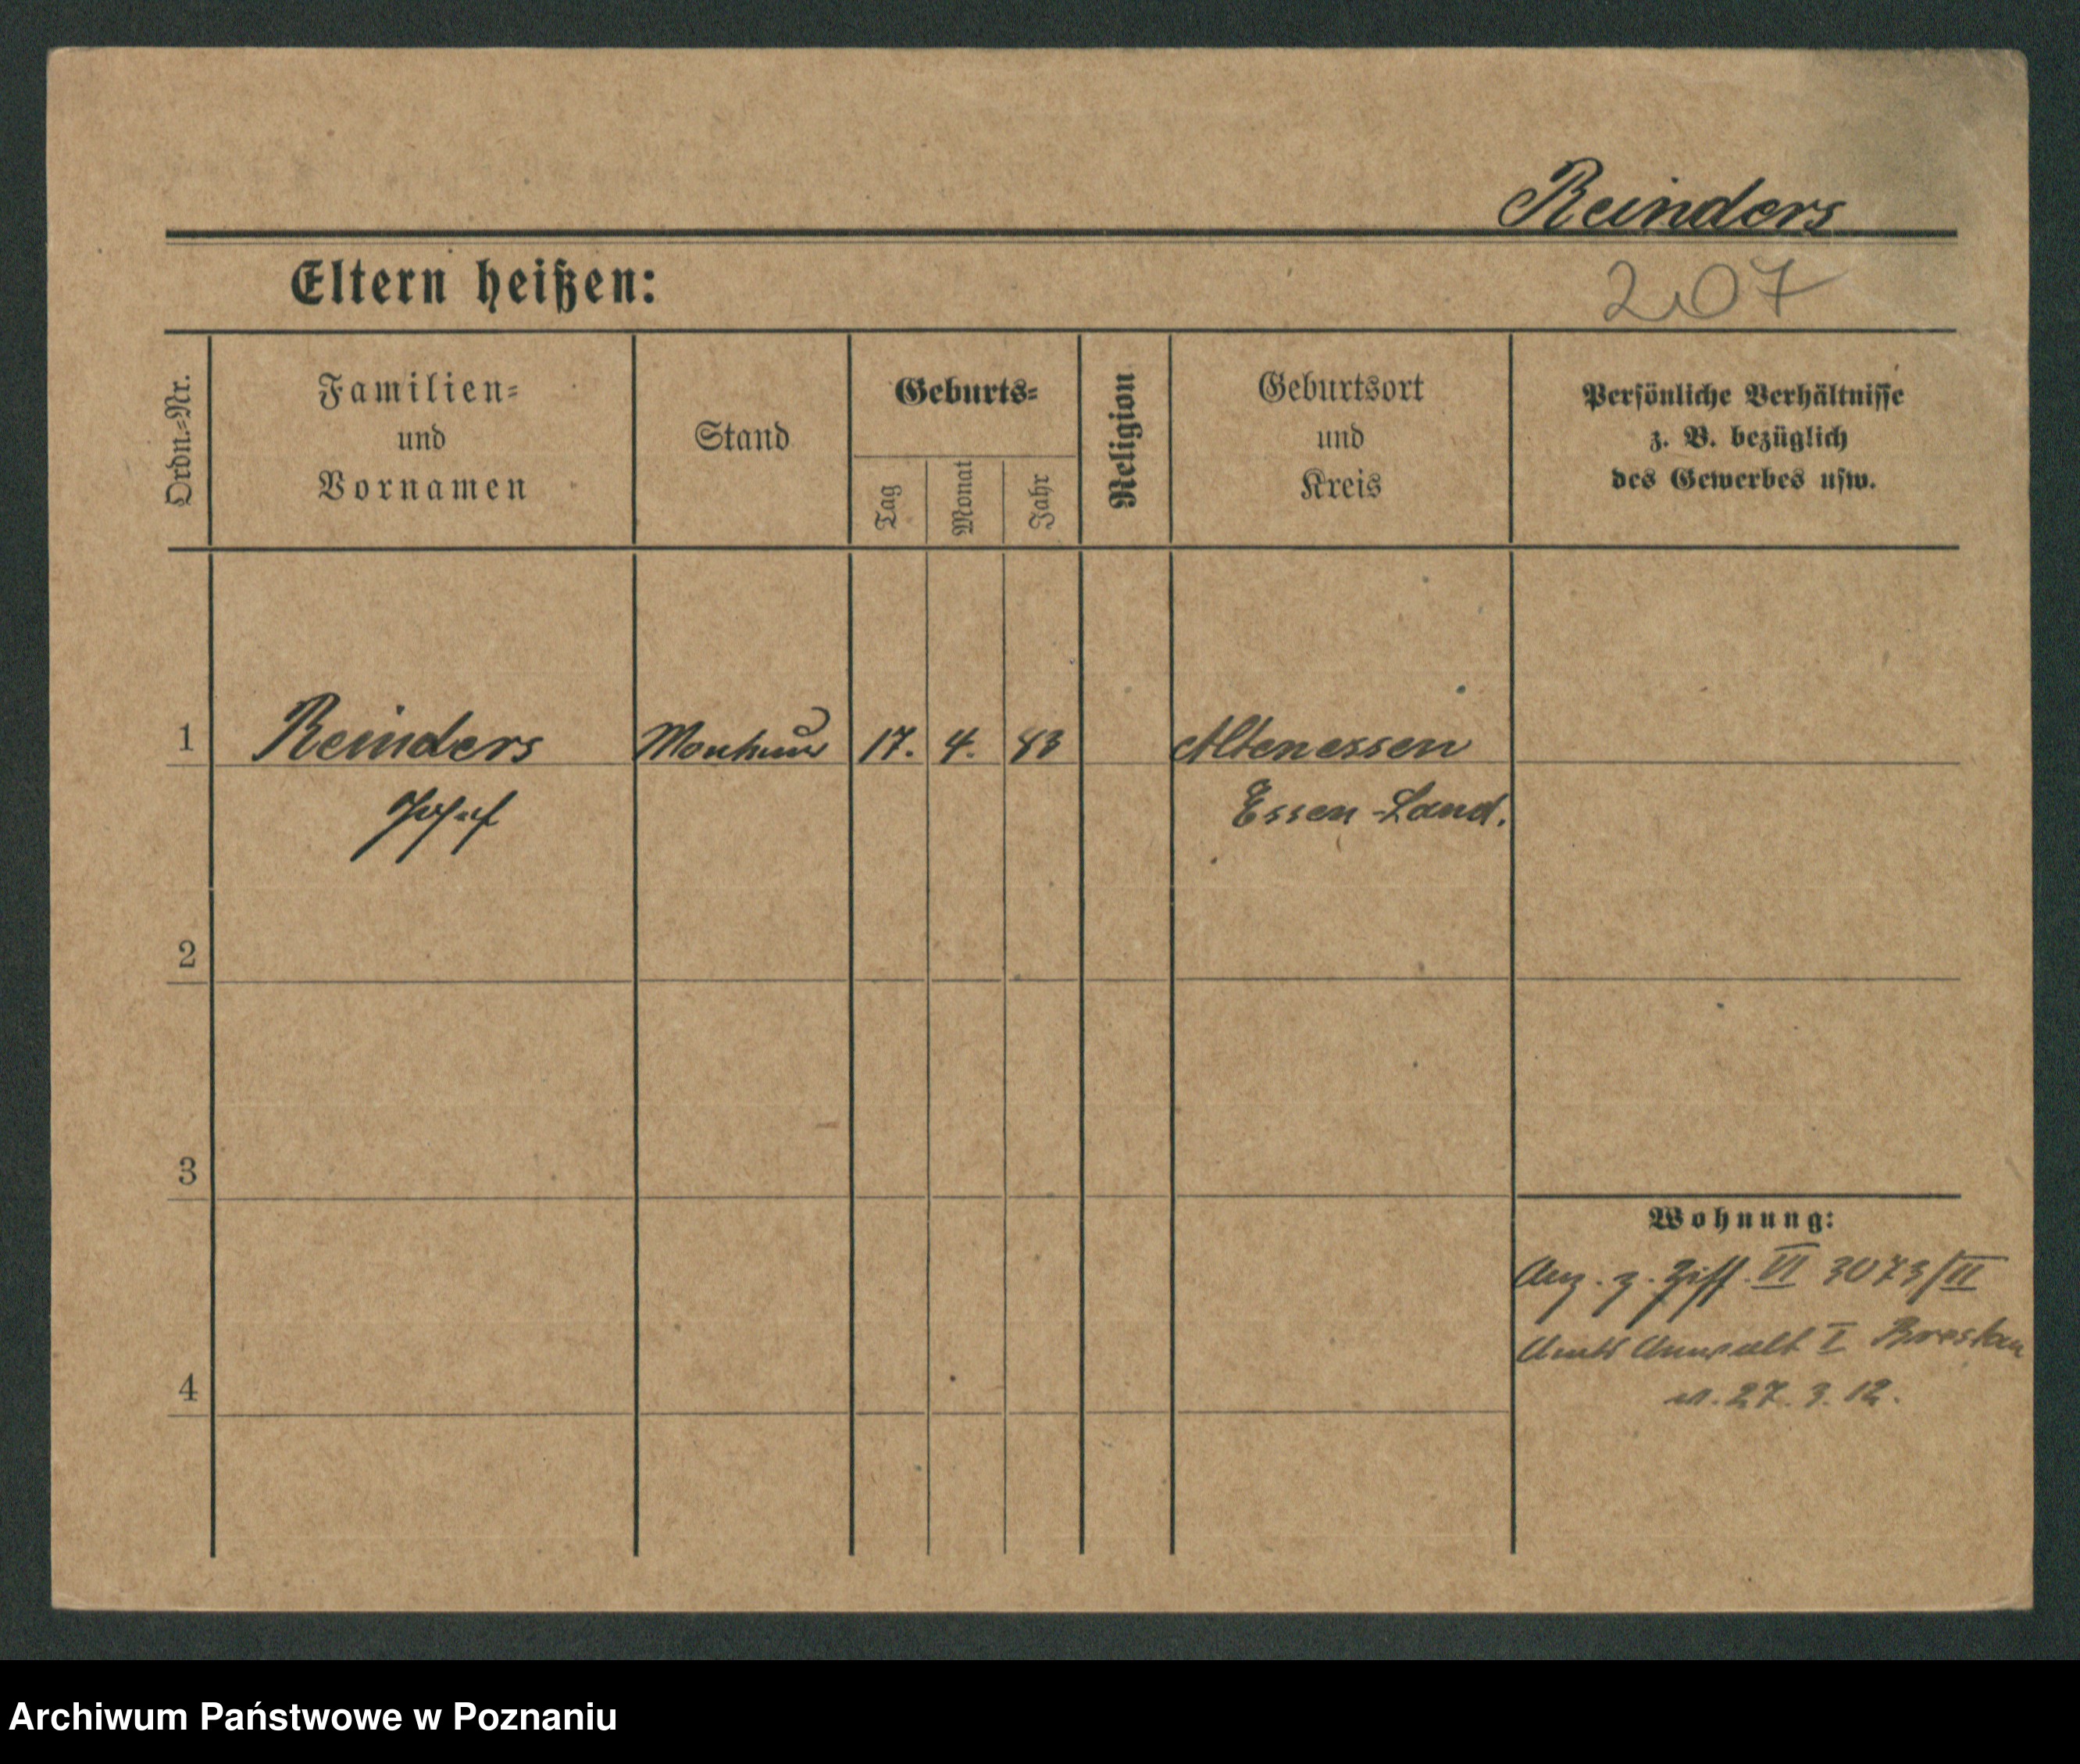 Reinders
Eltern heißen:
207
Ordn.=Nr.
Familien=
und
Vornamen
Stand
Geburts=
Tag
Monat
Jahr
Religion
Geburtsort
und
Kreis
Persönliche Verhältnisse
z. B. bezüglich
des Gewerbes usw.
1
Reinders
Monteur
17. 4. 83
Altenessen
Josef
Essen-Land.
2
3
Wohnung:
z. Ziff. VI 3073/II
Amts Anwalt I Breslau
v. 27. 3. 12.
4
Archiwum Państwowe w Poznaniu